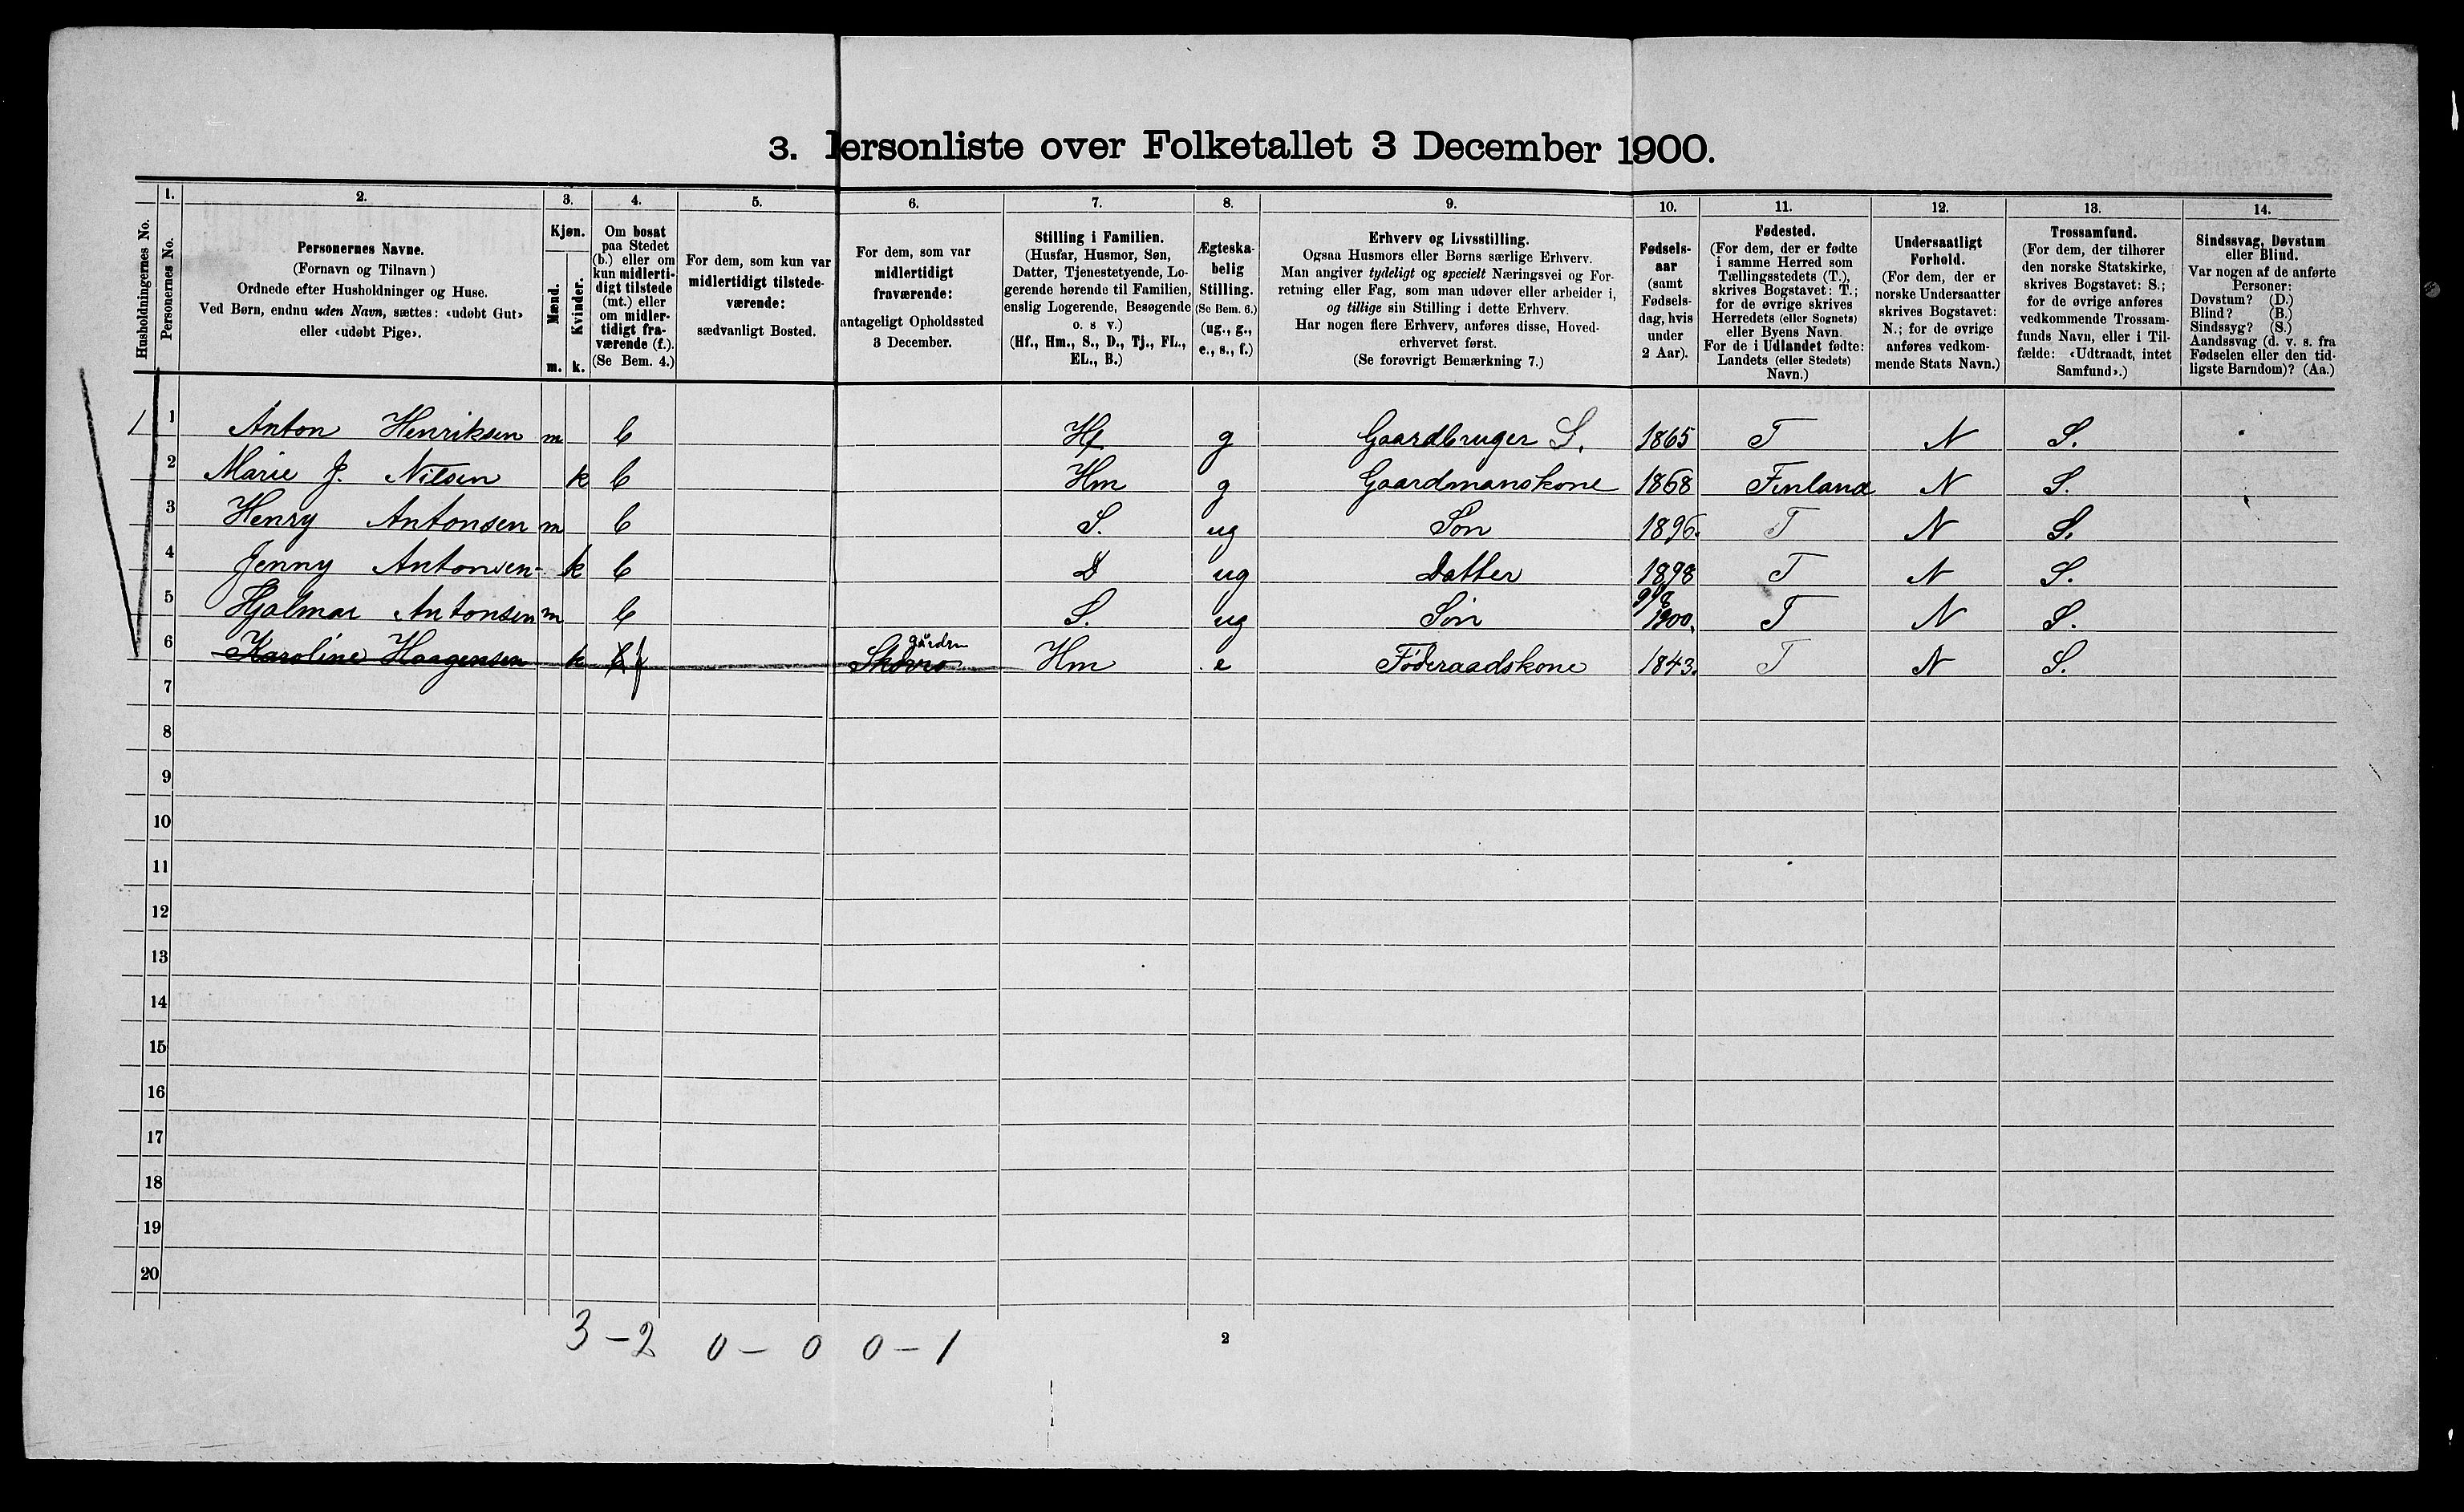 3. Personliste over Folketallet 3 December 1900.
Husholdningernes No.
1.
Personernes No.
2.
Personernes Navne.
(Fornavn og Tilnavn)
Ordnede efter Husholdninger og Huse.
Ved Børn, endnu uden Navn, sættes: «udøbt Gut»
eller «udøbt Pige».
3.
Kjøn.
Mænd.
Kvinder.
m. k.
4.
Om bosat
paa Stedet
(b.) eller om
kun midlerti-
digt tilstede
(mt.) eller
om midler-
tidigt fra-
værende (f.).
(Se Bem. 4.)
5.
For dem, som kun var
midlertidigt tilstede-
værende:
sædvanligt Bosted.
6.
For dem, som var
midlertidigt
fraværende:
antageligt Opholdssted
3 December.
7.
Stilling i Familien.
(Husfar, Husmor, Søn,
Datter, Tjenestetyende, Lo-
gerende hørende til Familien,
enslig Logerende, Besøgende
o. s v.)
(Hf., Hm., S., D., Tj., FL.,
EL., B.)
8.
Ægteska-
belig
Stilling.
(Se Bem. 6.)
(ug., g.,
e., s., f.)
9.
Erhverv og Livsstilling.
Ogsaa Husmors eller Børns særlige Erhverv.
Man angiver tydeligt og specielt Næringsvei og For-
retning eller Fag, som man udøver eller arbeider i,
og tillige sin Stilling i dette Erhverv.
Har nogen flere Erhverv, anføres disse, Hoved-
erhvervet først.
(Se forøvrigt Bemærkning 7.)
10.
Fødsels-
aar
(samt
Fødsels-
dag, hvis
under
2 Aar).
11.
Fødested.
(For dem, der er fødte
i samme Herred som
Tællingsstedets (T.),
skrives Bogstavet: T.;
for de øvrige skrives
Herredets (eller Sognets)
eller Byens Navn.
For de i Udlandet fødte:
Landets (eller Stedets)
Navn.)
12.
Undersaatligt
Forhold.
(For dem, der er
norske Undersaatter
skrives Bogstavet:
N.; for de øvrige
anføres vedkom-
mende Stats Navn.)
13.
Trossamfund.
(For dem, der tilhører
den norske Statskirke,
skrives Bogstavet: S.;
for de øvrige anføres
vedkommende Trossam-
funds Navn, eller i Til-
fælde: «Udtraadt, intet
Samfund».)
14.
Sindssvag, Døvstum
eller Blind.
Var nogen af de anførte
Personer:
Døvstum? (D.)
Blind? (B.)
Sindssyg? (S.)
Aandssvag (d. v. s. fra
Fødselen eller den tid-
ligste Barndom)? (Aa.)
1 1 Anton Henriksen m b Hf g Gaardbruger S. 1865 T N S.
2 Marie J. Nilsen k b Hm g Gaardmanskone 1868 Finland N S.
3 Henry Antonsen m b S. ug Søn 1896. T N S.
4 Jenny Antonsen k b D ug Datter 1898 T N S.
5 Hjalmar Antonsen m b S. ug Søn 9/8 1900. T N S.
6 Karoline Haagensen k b f gården Hm e Føderaadskone 1843. T N S.
7
8
9
10
11
12
13
14
15
16
17
18
19
20
3 - 2 0 - 0 0 - 1
2